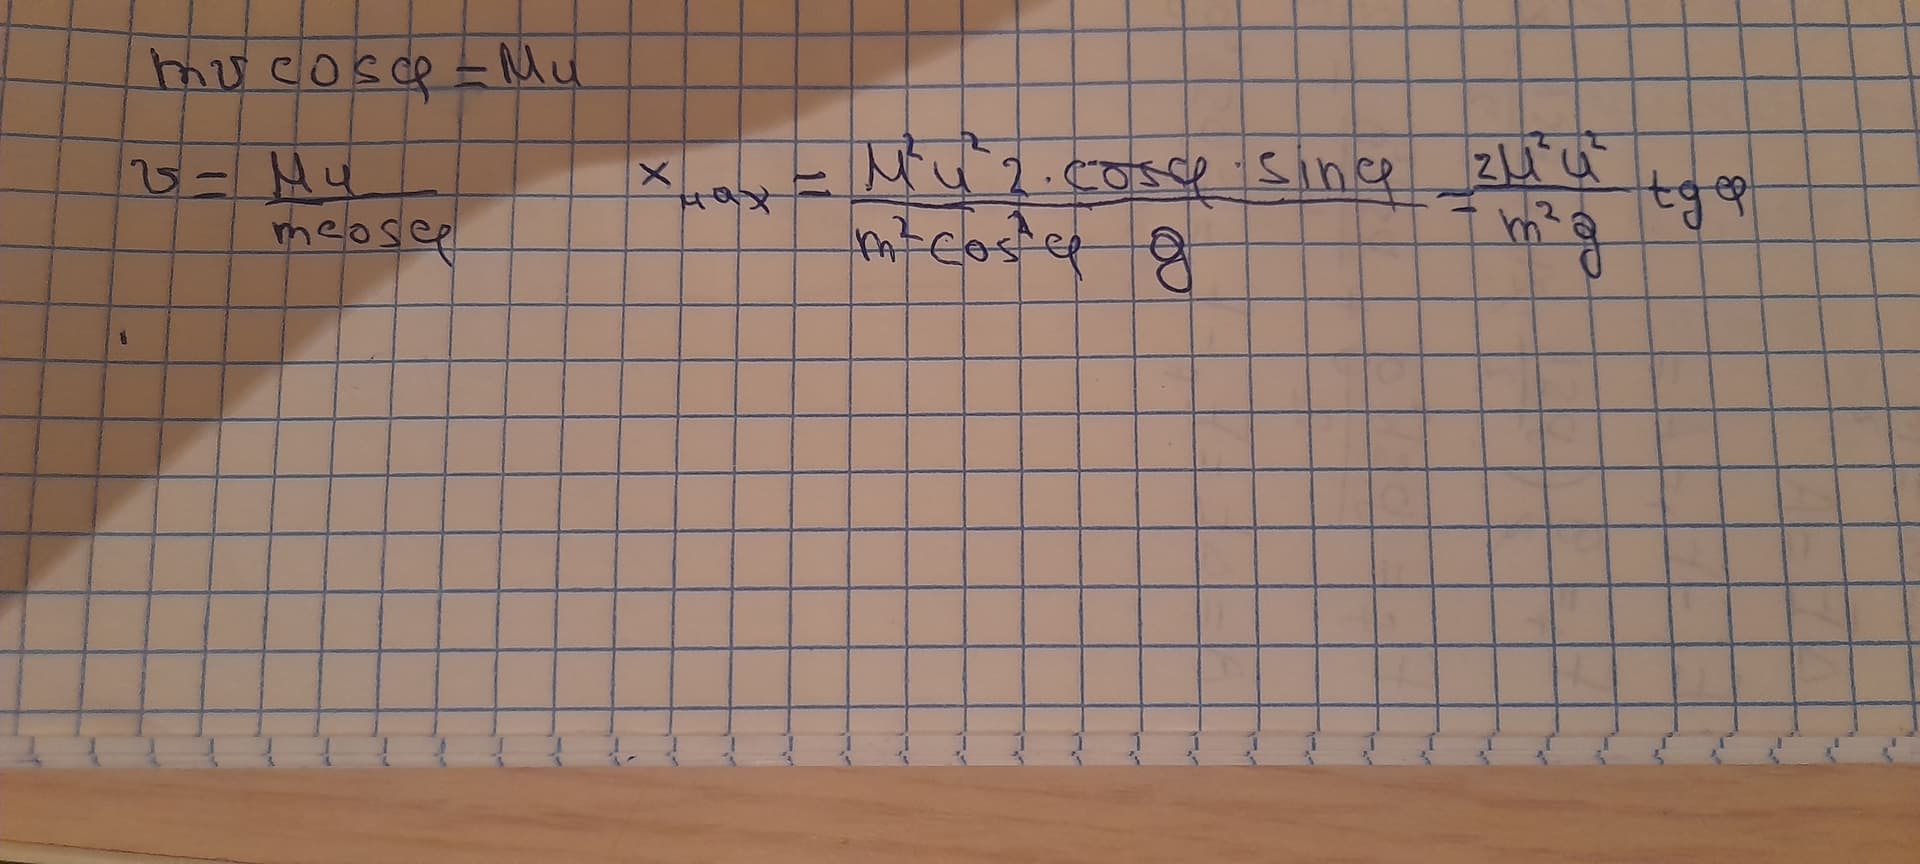 mv cosφ = Mu
v = Mu / mcosφ
x_max = M²u² 2 · cosφ · sinφ / m² cos² φ g = 2M²u² / m²g tgφ